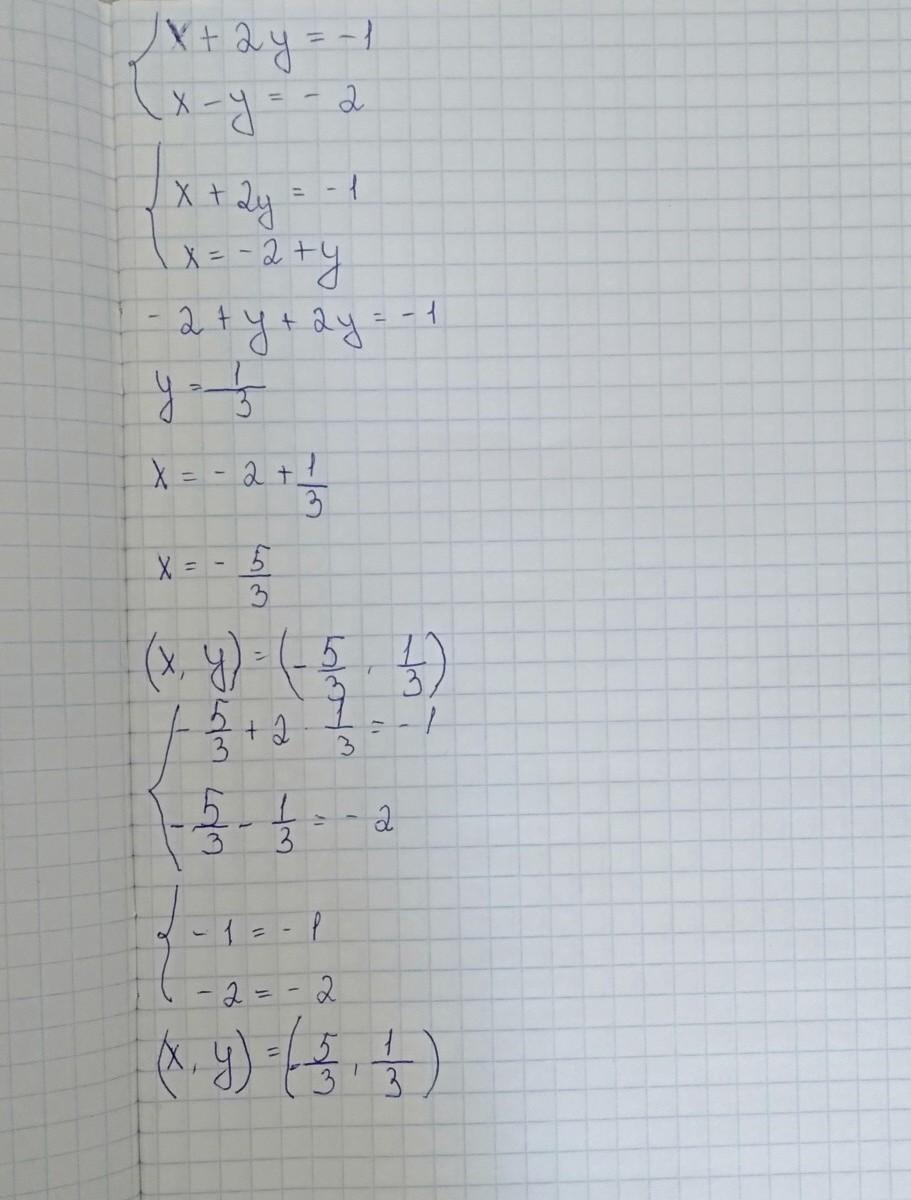 x + 2y = -1
x - y = - 2
x + 2y = -1
x = -2 + y
- 2 + y + 2y = -1
y = 1/3
x = - 2 + 1/3
x = - 5/3
(x, y) = (- 5/3, 1/3)
- 5/3 + 2 · 1/3 = -1
- 5/3 - 1/3 = - 2
-1 = -1
-2 = - 2
(x, y) = (- 5/3, 1/3)